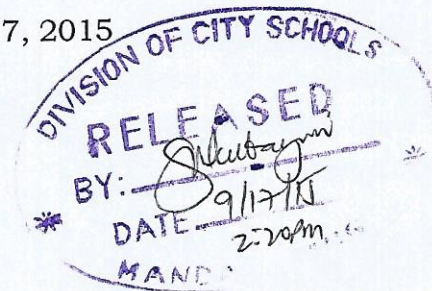 7, 2015
DIVISION OF CITY SCHOOLS
RELEASED
BY:
DATE 9/17/15
2:20pm
MAND